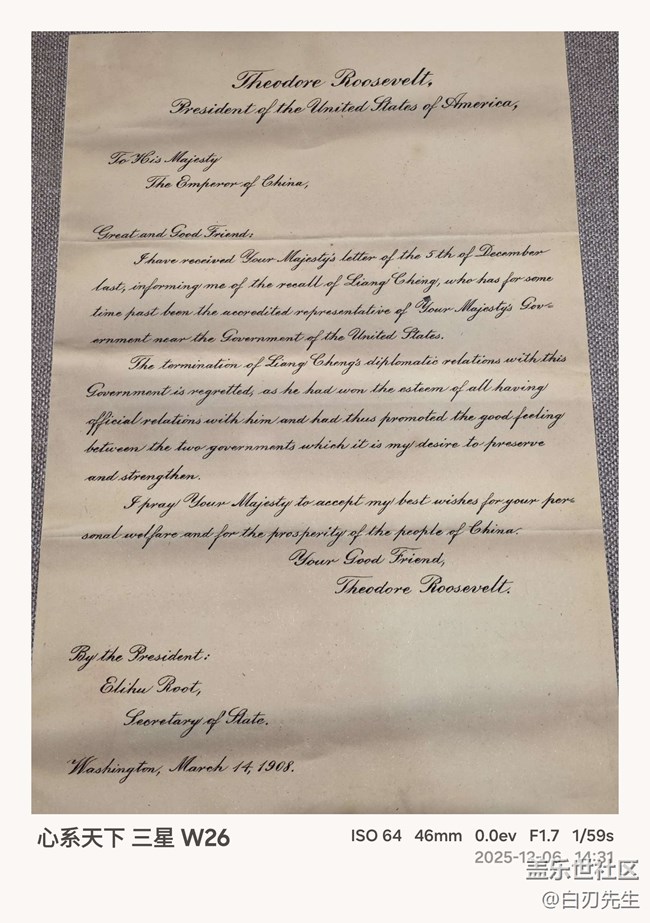 Theodore Roosevelt,
President of the United States of America,
To His Majesty
The Emperor of China,
Great and Good Friend:
I have received Your Majesty's letter of the 5th of December
last, informing me of the recall of Liang Cheng, who has for some
time past been the accredited representative of Your Majesty's Gov=
ernment near the Government of the United States.
The termination of Liang Cheng's diplomatic relations with this
Government is regretted, as he had won the esteem of all having
official relations with him and had thus promoted the good feeling
between the two governments which it is my desire to preserve
and strengthen.
I pray Your Majesty to accept my best wishes for your per=
sonal welfare and for the prosperity of the people of China.
Your Good Friend,
Theodore Roosevelt.
By the President:
Elihu Root,
Secretary of State.
Washington, March 14, 1908.
心系天下 三星 W26
ISO 64 46mm 0.0ev F1.7 1/59s
2025-12-06 14:31
盖乐世社区
@白刃先生